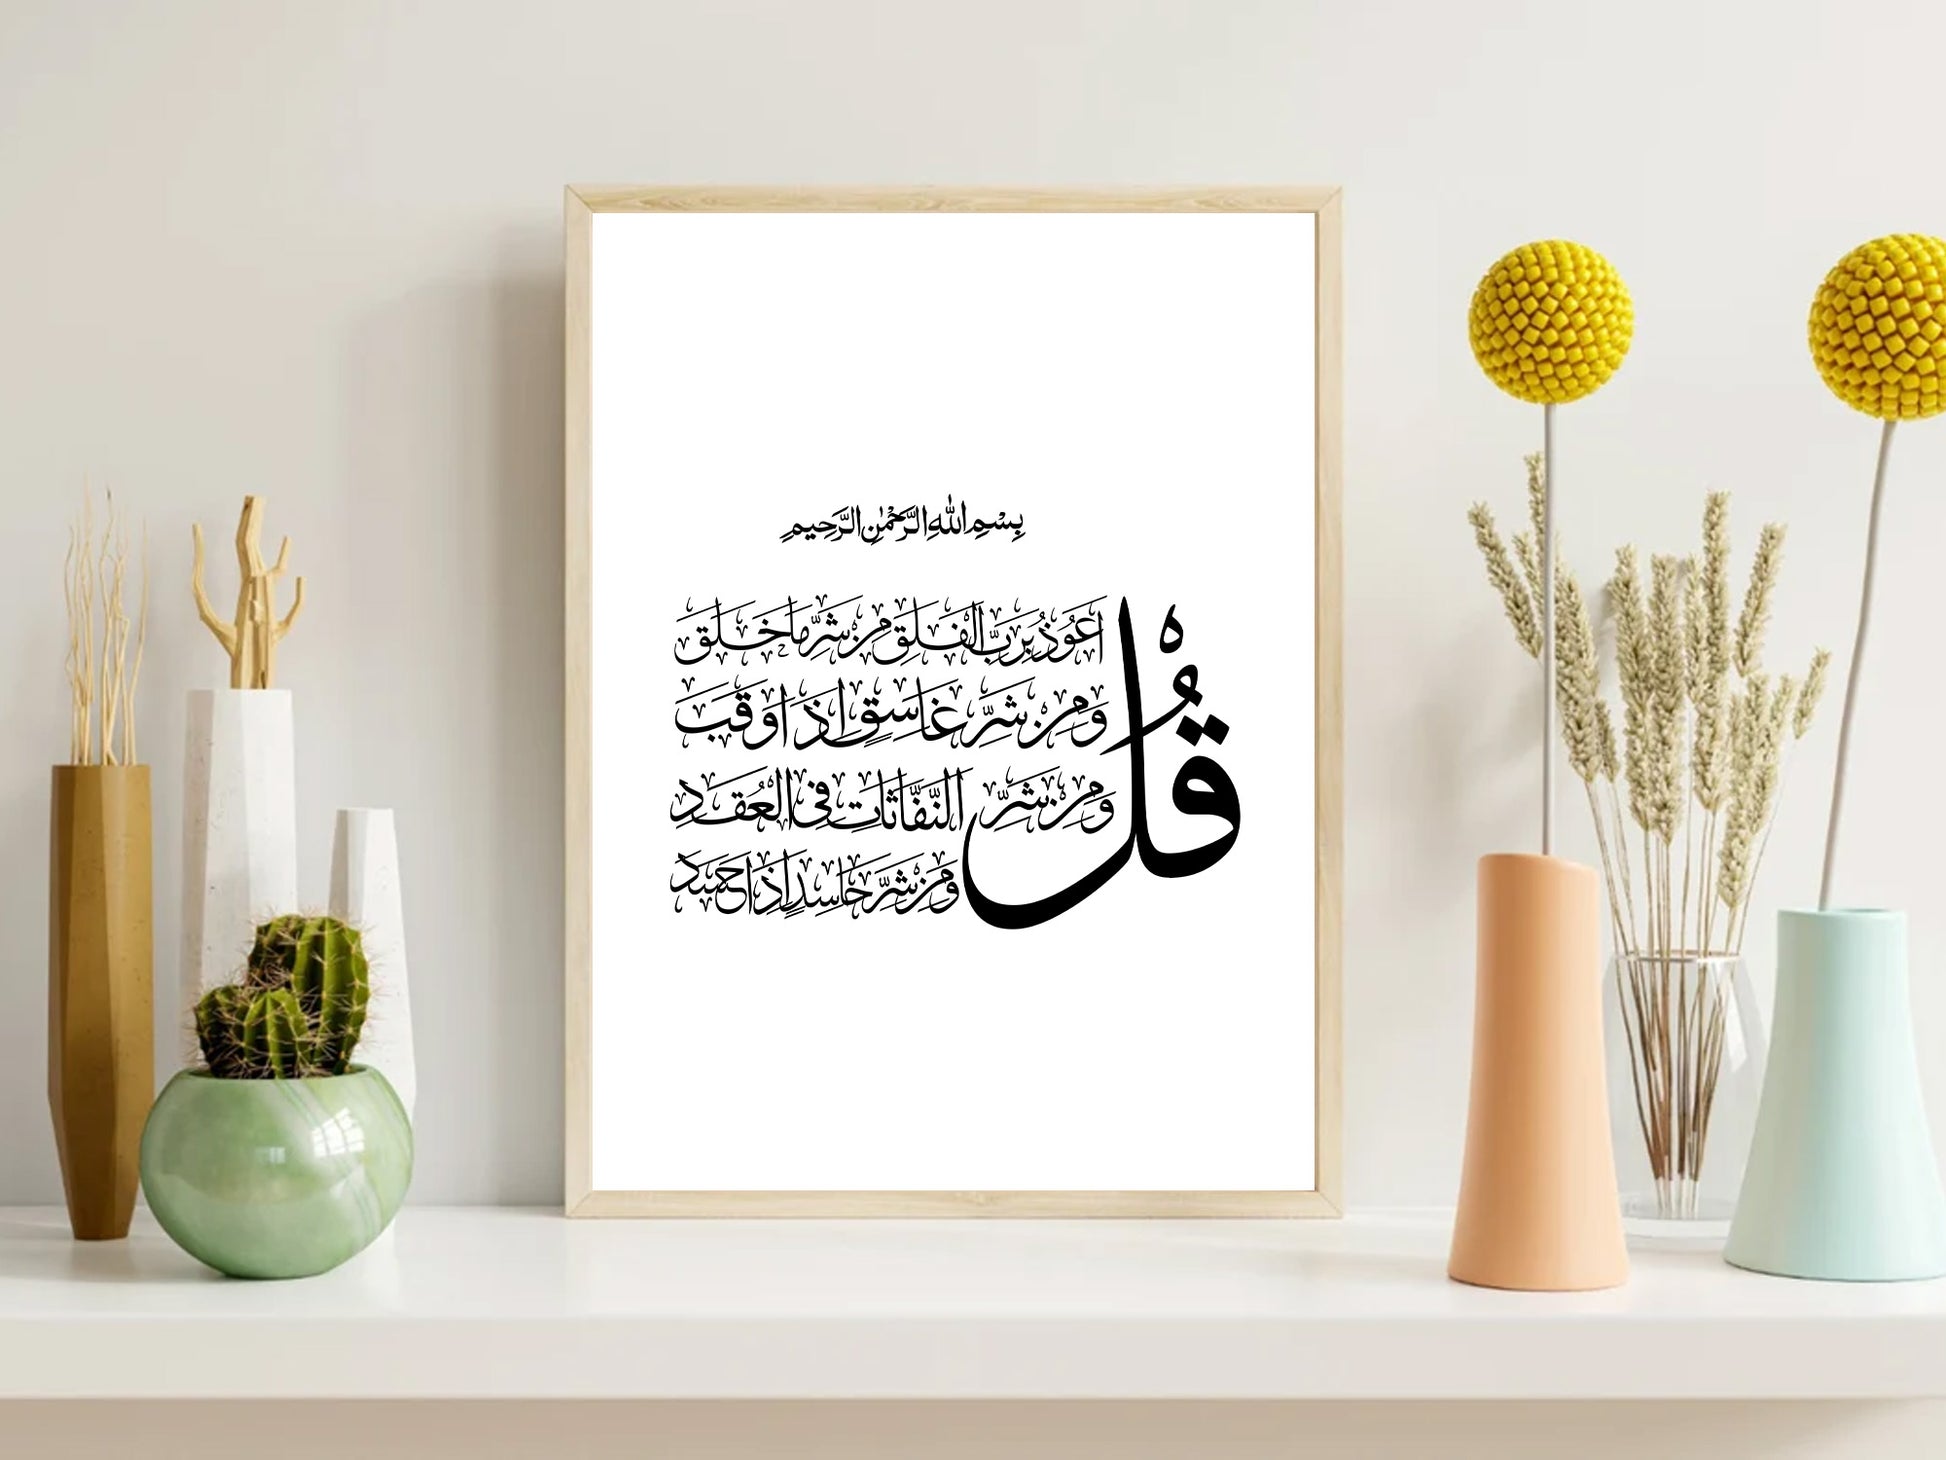 بِسْمِ اللهِ الرَّحْمٰنِ الرَّحِيمِ
قُلْ اَعُوْذُ بِرَبِّ الْفَلَقِ مِنْ شَرِّ مَا خَلَقَ
وَمِنْ شَرِّ غَاسِقٍ اِذَا وَقَبَ
وَمِنْ شَرِّ النَّفَّاثَاتِ فِى الْعُقَدِ
وَمِنْ شَرِّ حَاسِدٍ اِذَا حَسَدَ